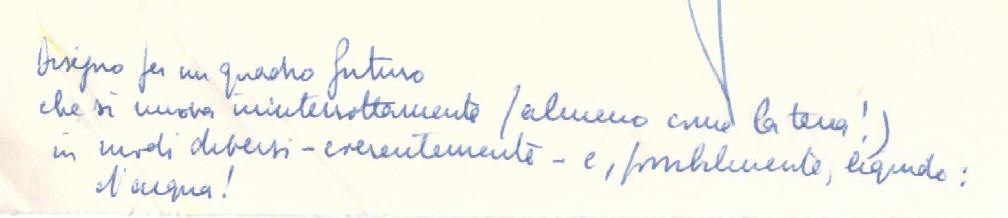 Disegno per un quadro futuro
che si muova ininterrottamente (almeno come la terra!)
in modi diversi - coerentemente - e, possibilmente, liquido:
d'acqua!